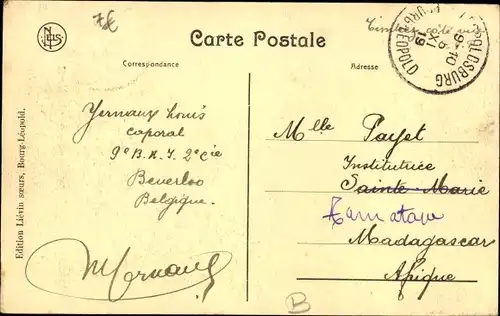 7€
Timbre côté vue
Carte Postale
Correspondance
Adresse
Yernaux Louis
caporal
9e B.A.I. 2e Cie
Beverloo
Belgique.
Yernaux
Edition Liévin sœurs, Bourg-Léopold.
Mlle Payet
Institutrice
Sainte-Marie
Tamatave
Madagascar
Afrique
B